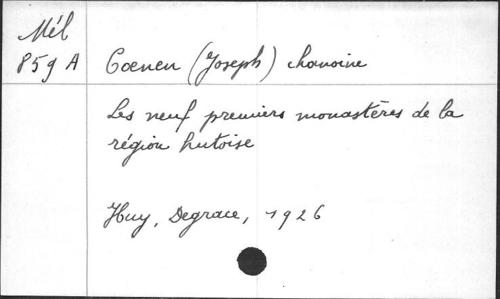 Mél
859 A
Coenen (Joseph) chanoine
Les neuf premiers monastères de la
région hutoise
Huy, Degrace, 1926